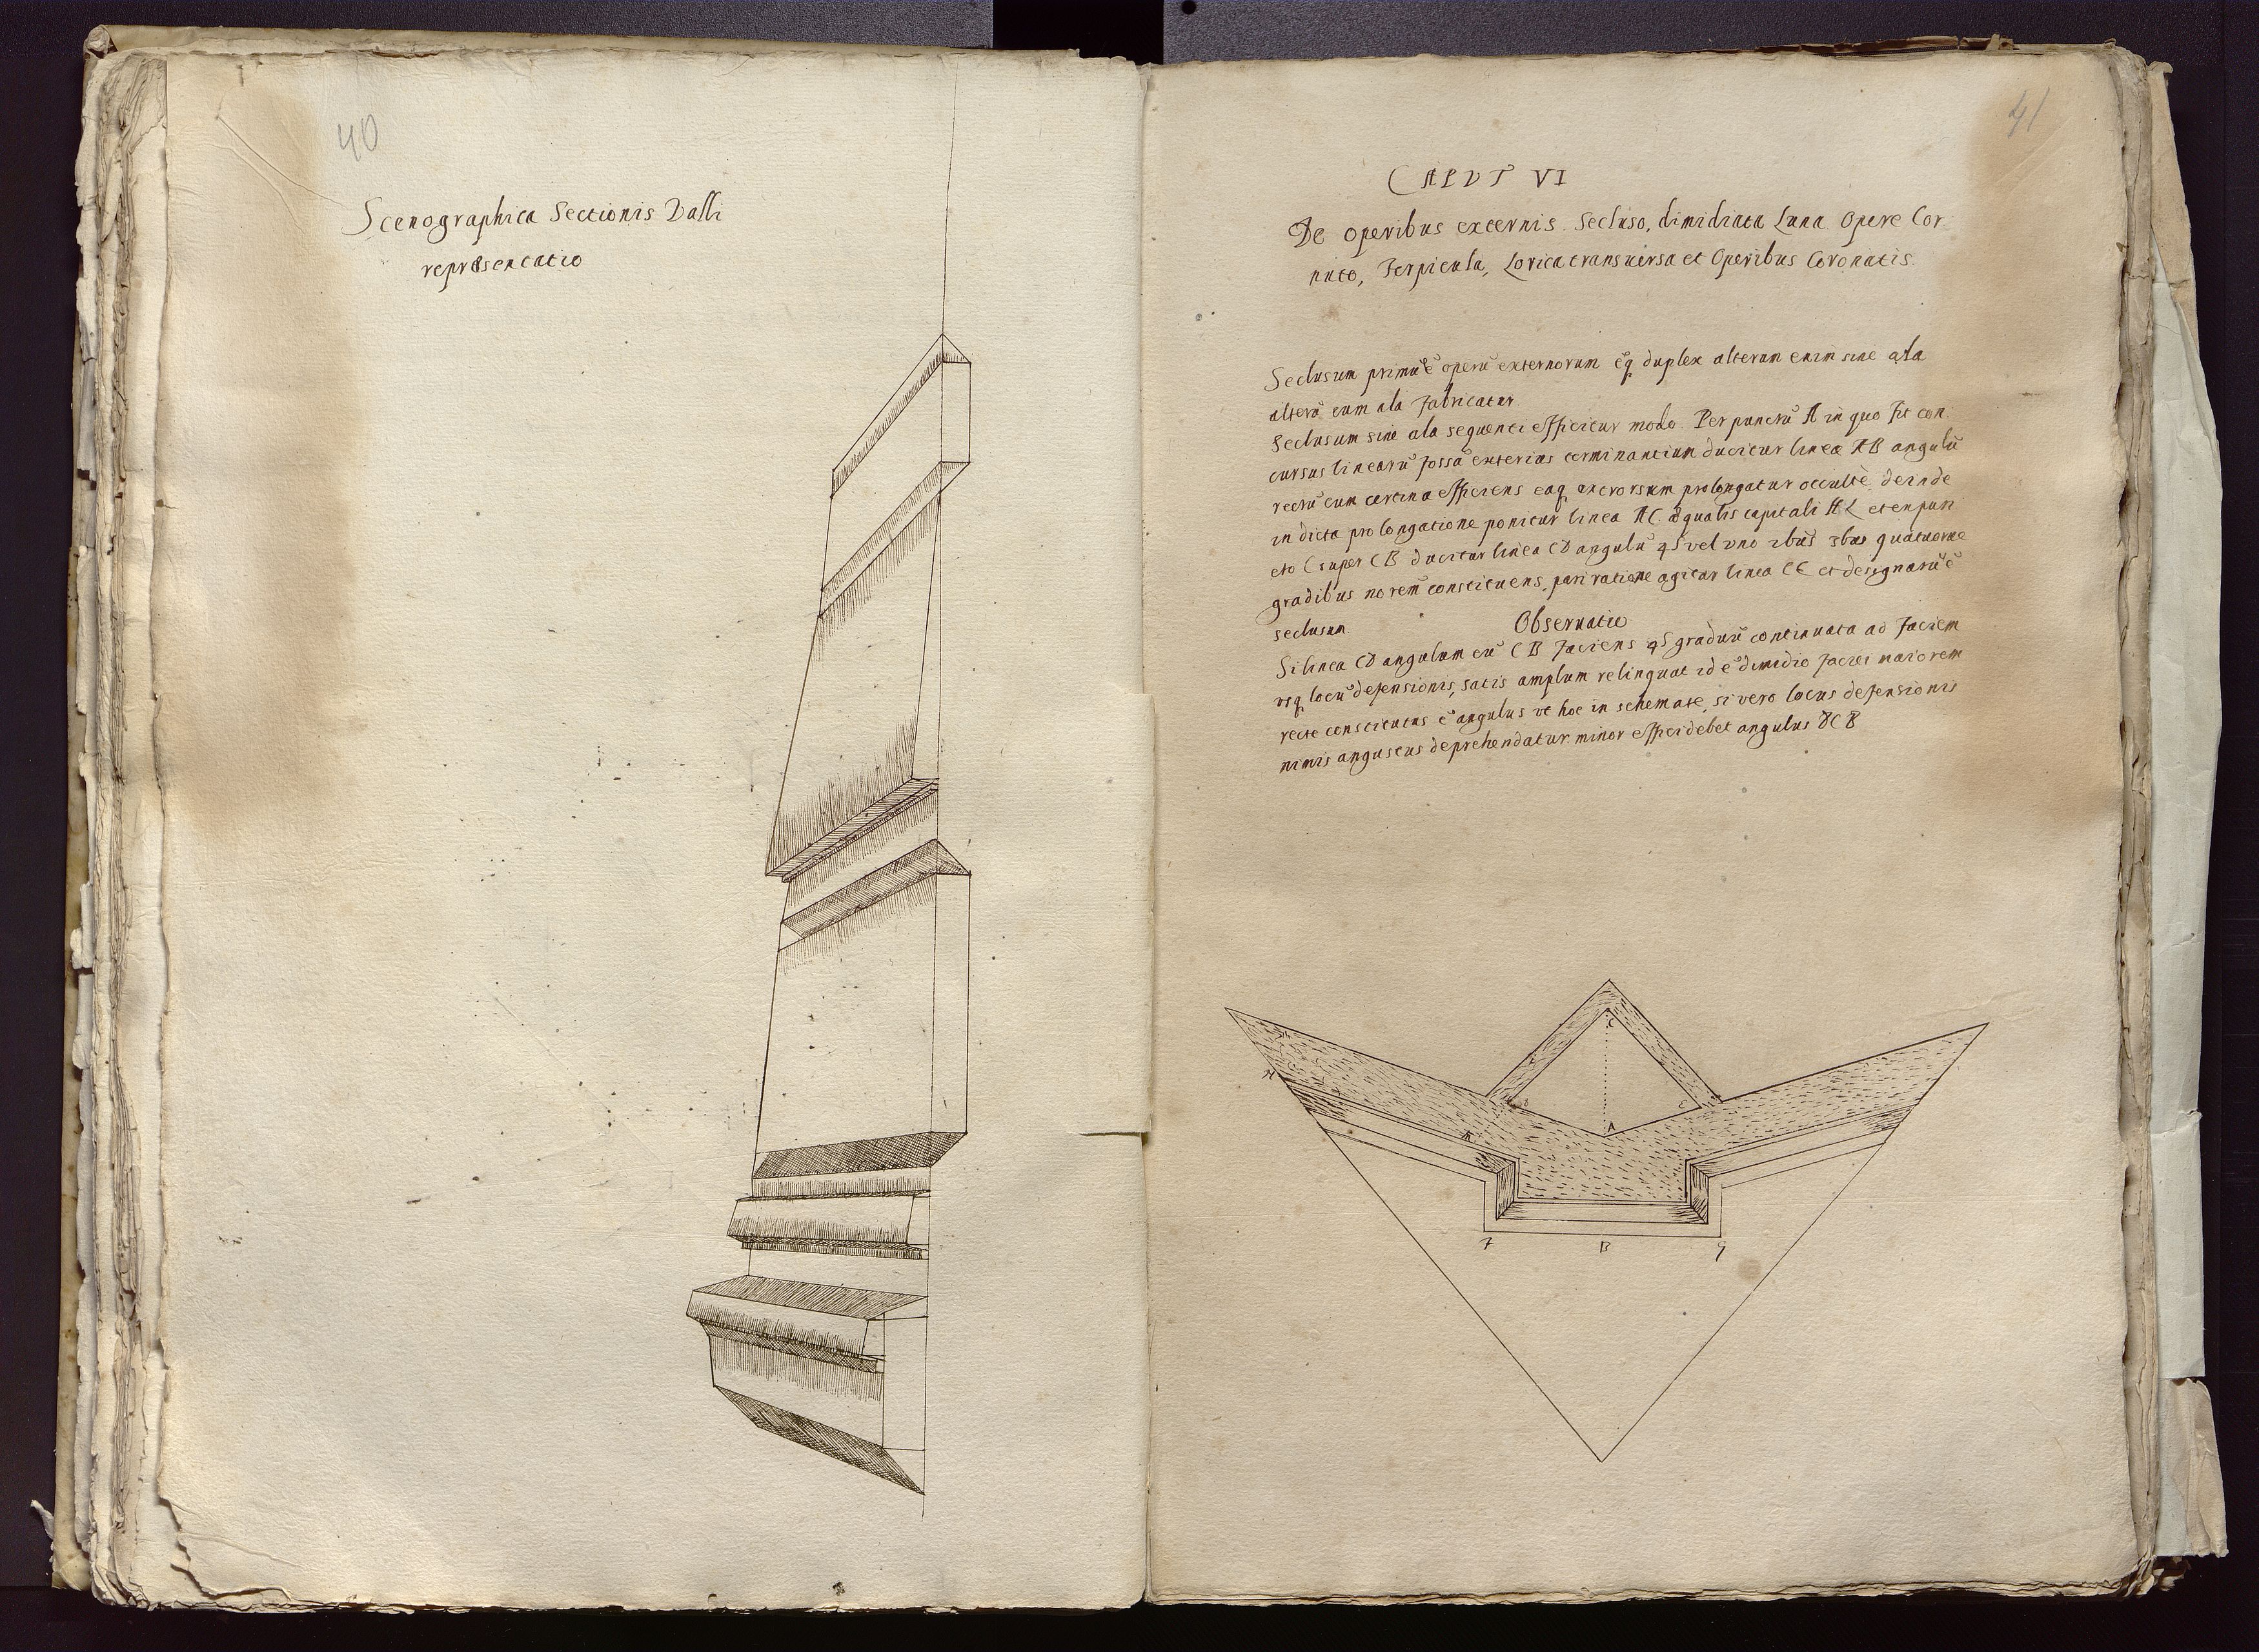 40
Scenographica Sectionis Valli
repræsentatio
41
CAPVT VI
De operibus externis. Secluso, dimidiata Luna Opere Cor
nuto, Forpicula, Lorica transuersa et Operibus Coronatis.
Seclusum primũ ẽ operũ externorum ẽq duplex alterum enim sine ala
alterũ cum ala fabricatur
Seclusum sine ala sequenti efficitur modo. Per punctũ A in quo fit con
cursus linearũ fossã exterius terminantium ducitur linea AB angulũ
rectũ cum cortina efficiens eaq extrorsum prolongatur occultè deinde
in dicta prolongatione ponitur linea AC æqualis capitali HL et en pun
cto C super CB ducitur linea CD angulũ 45 vel vno 2bus 3bus quatuorue
gradibus norem constituens, pari ratione agitur linea CE et designatũ ẽ
seclusum
Obseruatio
Si linea CD angulum cũ CB faciens 45 graduũ continuata ad faciem
vsq locũ defensionis, satis amplum relinquat id ẽ dimidio faciei maiorem
recte constitutus ẽ angulus vt hoc in schemate, si vero locus defensionis
nimis angustus deprehendatur minor effici debet angulus DCB
C
H
E
A
F
B
G